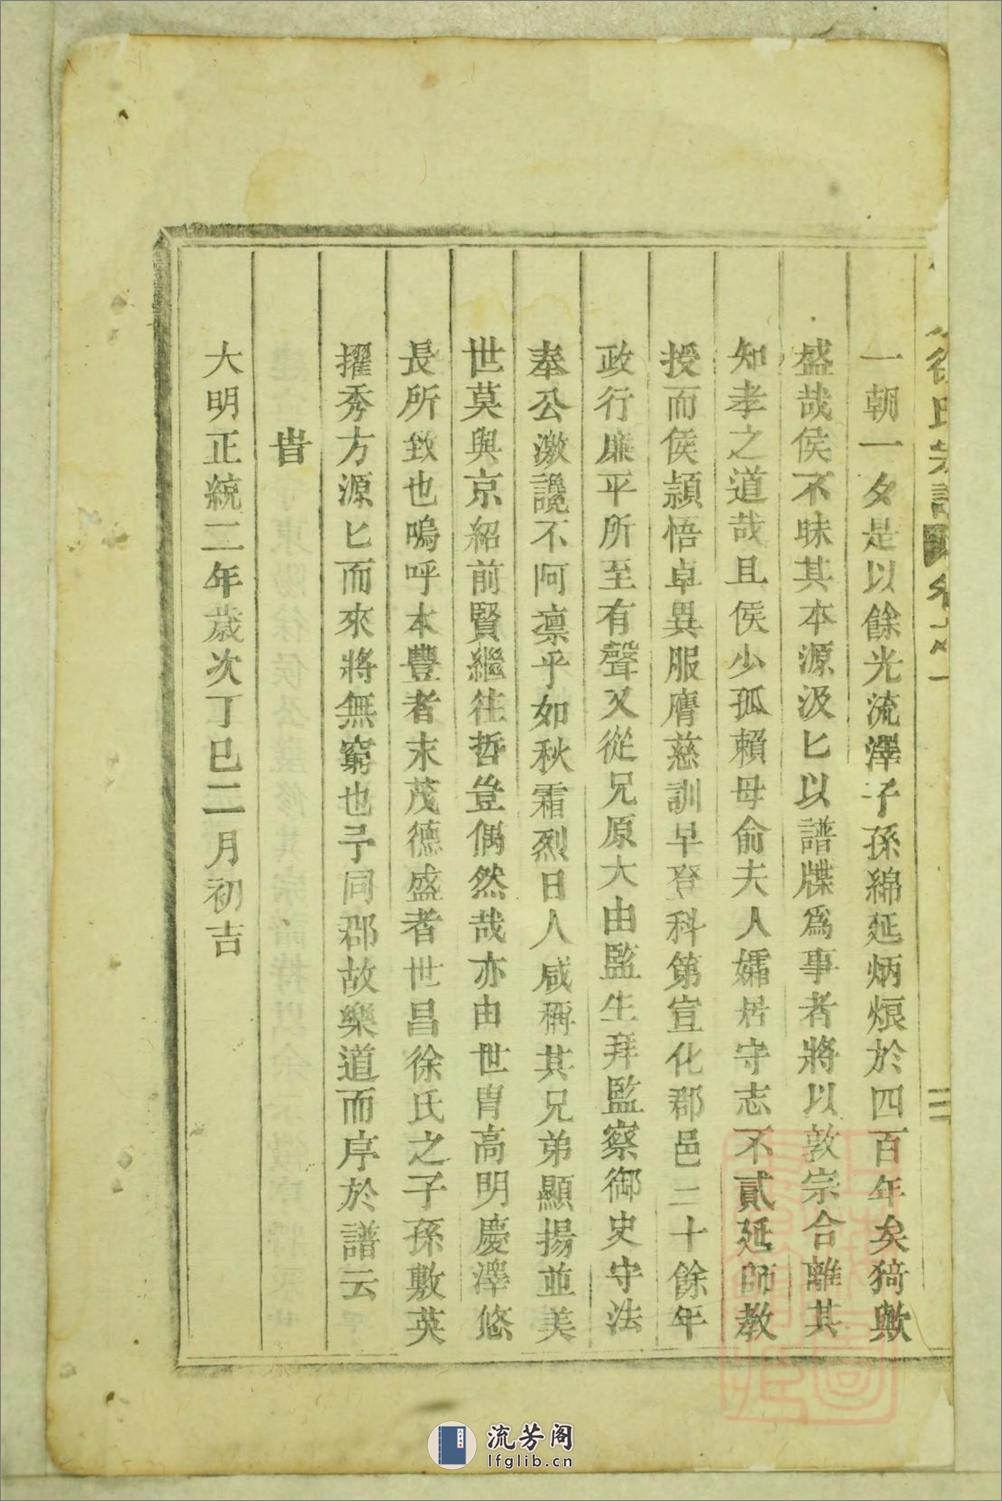 徐氏宗譜 卷之一 二
一朝一夕是以餘光流澤子孫綿延炳烺於四百年矣猗歟
盛哉侯不昧其本源汲匕以譜牒爲事者將以敦宗合離其
知孝之道哉且侯少孤賴母俞夫人孀居守志不貳延師教
授而侯頴悟卓異服膺慈訓早登科第宣化郡邑二十餘年
政行廉平所至有聲又從兄原大由監生拜監察御史守法
奉公激讒不阿凛乎如秋霜烈日人咸稱其兄弟顯揚並美
世莫與京紹前賢繼往哲豈偶然哉亦由世胄高明慶澤悠
長所致也嗚呼本豐者末茂德盛者世昌徐氏之子孫敷英
擢秀方源匕而來將無窮也予同郡故樂道而序於譜云
旹
大明正統二年歳次丁巳二月初吉
流芳阁
lfglib.cn